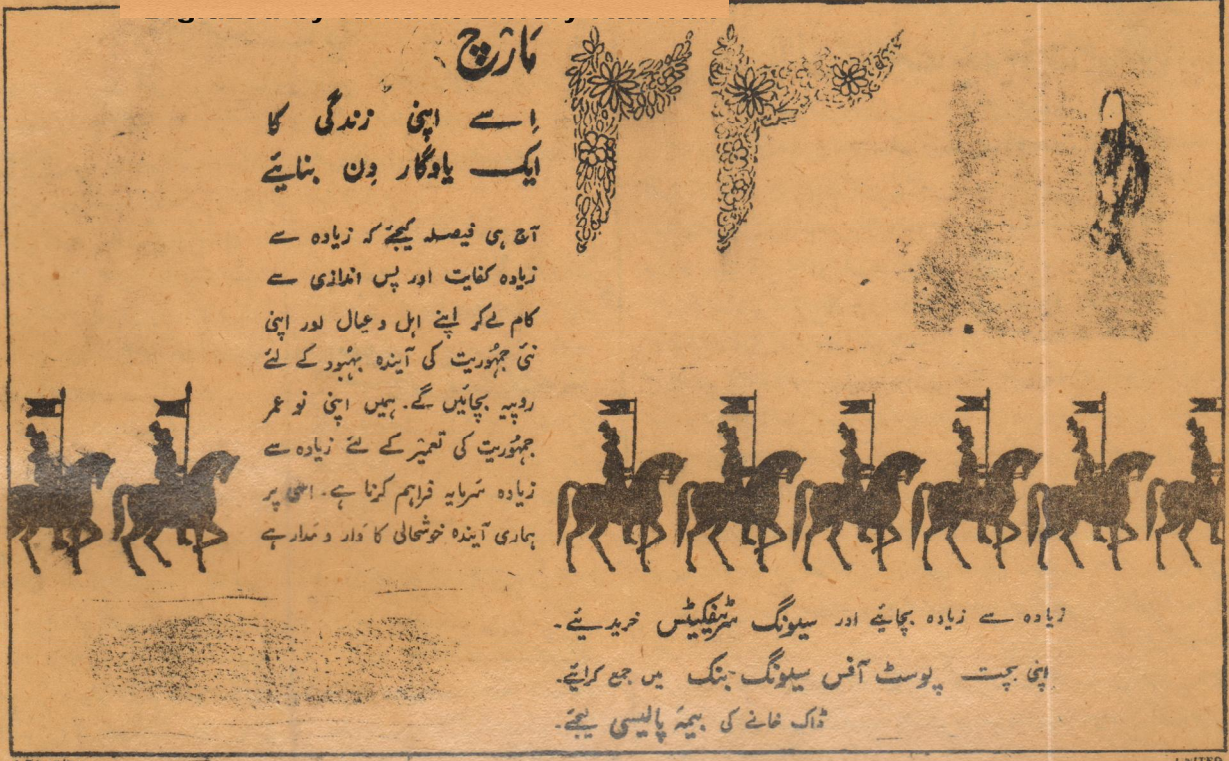 ۲۳ مارچ
اِسے اپنی زندگی کا
ایک یادگار دِن بنایئے
آج ہی فیصلہ کیجئے کہ زیادہ سے
زیادہ کفایت اور پس اندازی سے
کام لے کر اپنے اہل و عیال اور اپنی
نئی جمہُوریت کی آیندہ بہبُود کے لئے
روپیہ بچائیں گے۔ ہمیں اپنی نو عمر
جمہُوریت کی تعمیر کے لئے زیادہ سے
زیادہ سَرمایہ فراہم کرنا ہے۔ اسی پر
ہماری آیندہ خوشحالی کا دار و مَدار ہے
زیادہ سے زیادہ بچایئے اور سیونگ سرٹیفیکیٹس خریدیئے۔
اپنی بچت پوسٹ آفس سیلونگ بنک میں جمع کرایئے۔
ڈاک خانے کی بیمہ پالیسی لیجئے۔
UNITED